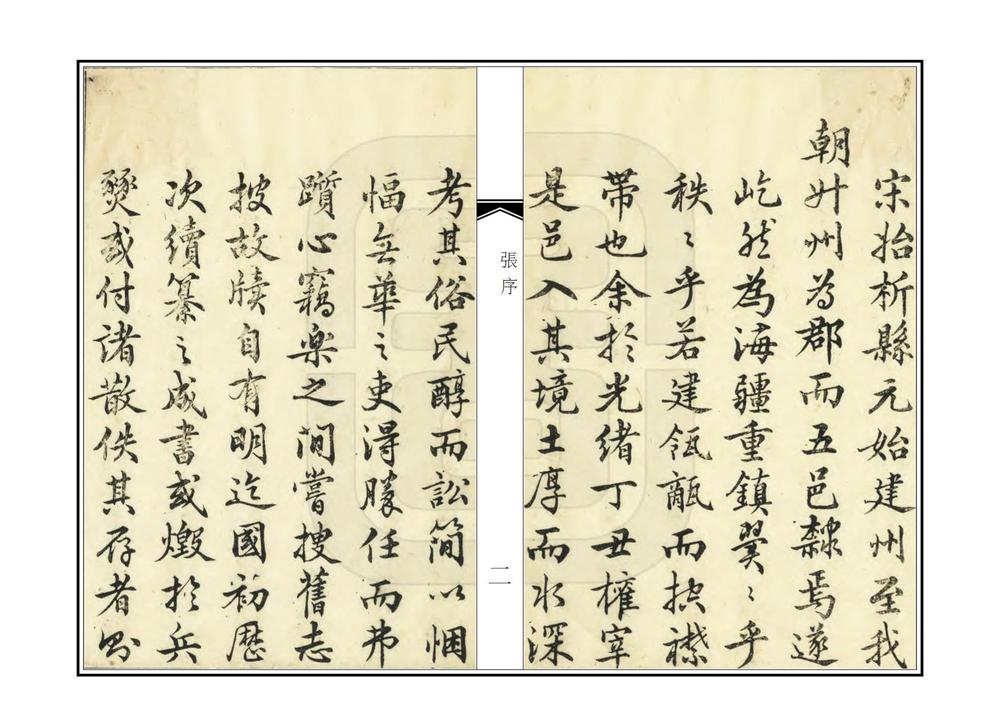 宋始析縣元始建州至我
朝廾州為郡而五邑隸焉遂
屹然為海疆重鎮翼〻乎
秩〻乎若建瓴甋而抉襟
帶也余於光緒丁丑權宰
是邑入其境土厚而水深
張序
二
考其俗民醇而訟簡以悃
愊無華之吏得勝任而弗
躓心竊樂之間嘗搜舊志
披故牘自有明迄國初歷
次續纂之成書或燬於兵
燹或付諸散佚其存者則